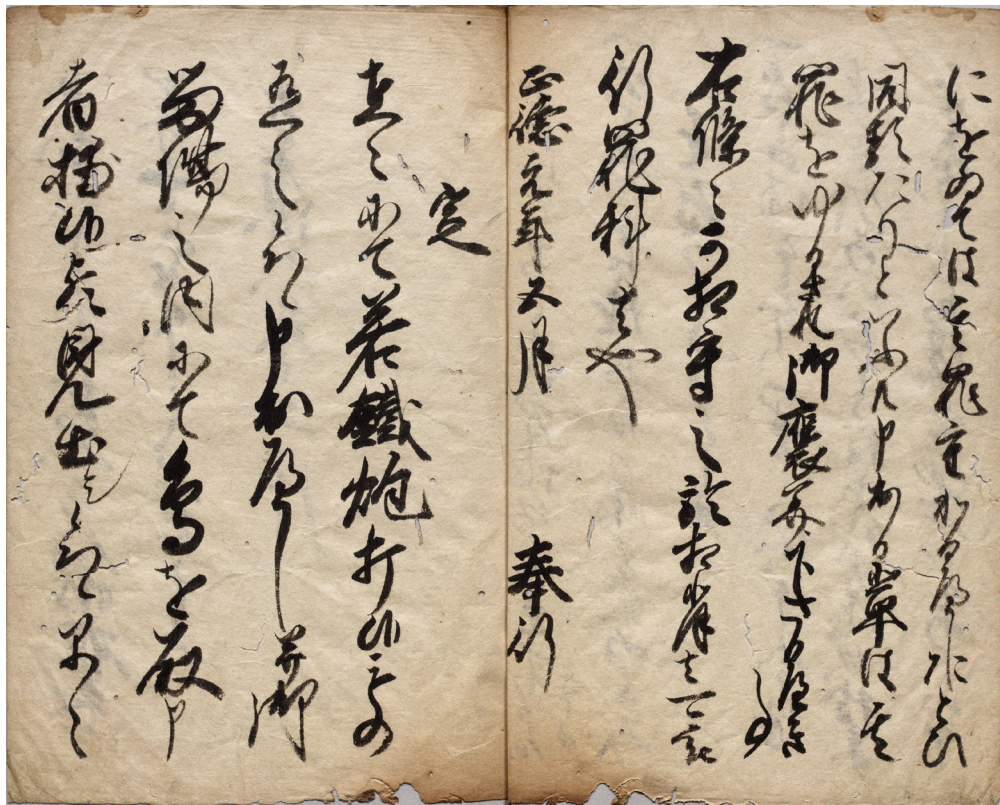 にをゐては其罪重かるへしたとひ
同類たりといふとも申出る輩は其
罪をゆるされ御褒美下さるへき
事
右條々可相守之於相背者可被
行罪科者也
正徳元年五月　奉行
定
在々にて若鐵炮打候もの
有之候ハヽ申出へし并御
留場之内にて鳥を取申
者捕候歟見出し候ハヽ早々